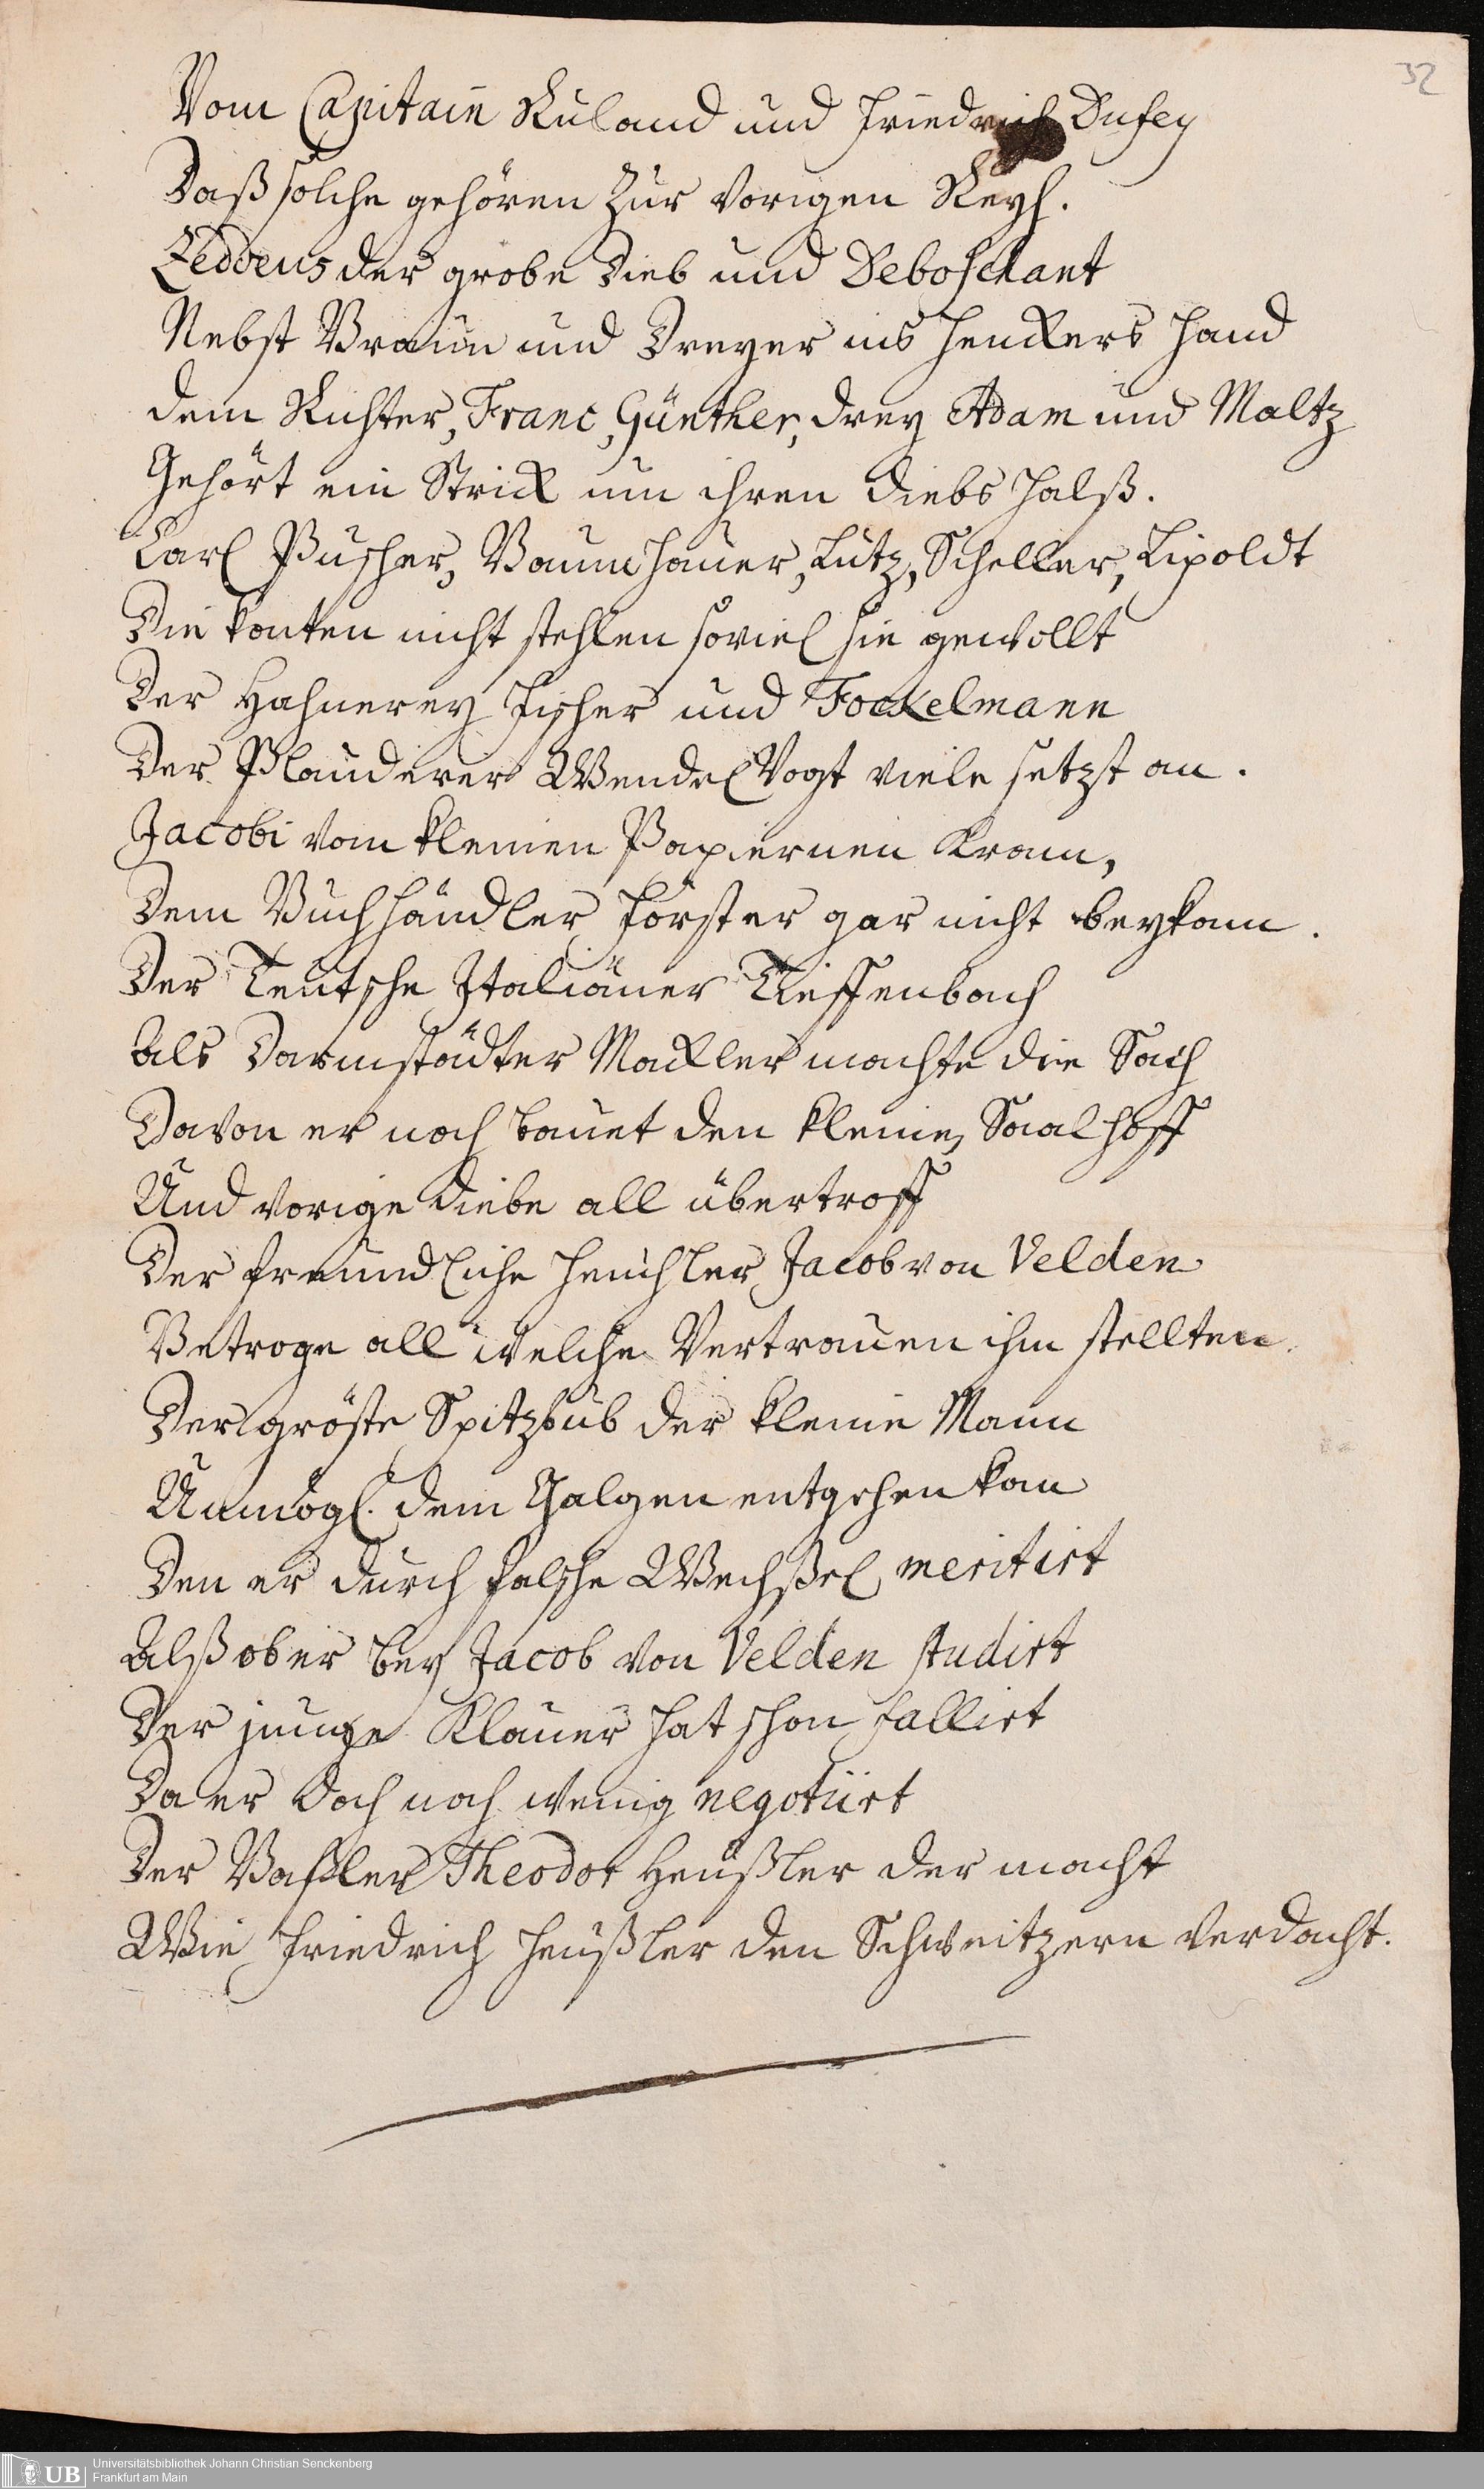 32
Vom Capitain Ruland und Friedrich Dufey
Daß solche gehören zur vorigen Reyh.
Zeddeus der grobe Dieb und Deboschant
Nebst Braun und Dreyer ins Henckers Hand
dem Richter, Franc, Günther, drey Adam und Maltz
Gehört ein Strick um ihren Diebs Halß.
Carl Puscher, Baumhauer, Lutz, Scheller, Lipoldt
Die konten nicht stehlen soviel sie gewollt
Der Hahnerey Fischer und Fockelmann
Der Plauderer Wendel Vogt viele setzt an.
Jacobi vom kleinen Papiernen Kram,
Dem Buchhändler Förster gar nicht beykam.
Der Teutsche Italiäner Tieffenbach
Als Darmstädter Mackler machte die Sach
Davon er noch bauet den kleinen Saalhoff
Und vorige Diebe all übertroff
Der freundliche Heuchler Jacob von Velden
Betroge all welche Vertrauen ihm stellten.
Der gröste Spitzbub der kleine Mann
Unmögl. dem Galgen entgehen kan
Den er durch falsche Wechßel meritirt
Alß ober bey Jacob von Velden studirt
Der junge Klauer hat schon fallirt
Da er doch noch wenig negotiirt
Der Baßler Theodor Heußler der macht
Wie Friedrich Heußler den Schweitzern Verdacht.
UB
Universitätsbibliothek Johann Christian Senckenberg
Frankfurt am Main